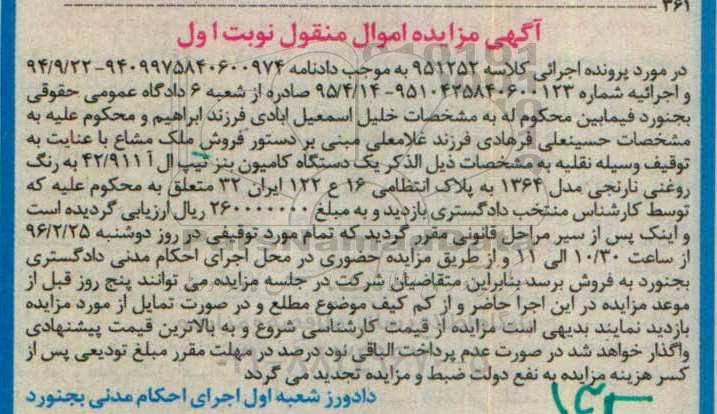 ۳۶۱
آگهی مزایده اموال منقول نوبت اول
در مورد پرونده اجرائی کلاسه ۹۵۱۲۵۲ به موجب دادنامه ۹۴۰۹۹۷۵۸۴۰۶۰۰۹۷۴-۹۴/۹/۲۲
و اجرائیه شماره ۹۵۱۰۴۲۵۸۴۰۶۰۰۱۲۳-۹۵/۴/۱۴ صادره از شعبه ۶ دادگاه عمومی حقوقی
بجنورد فیمابین محکوم له به مشخصات خلیل اسمعیل ابادی فرزند ابراهیم و محکوم علیه به
مشخصات حسینعلی فرهادی فرزند غلامعلی مبنی بر دستور فروش ملک مشاع با عنایت به
توقیف وسیله نقلیه به مشخصات ذیل الذکر یک دستگاه کامیون بنز تیپ ال آ ۴۲/۹۱۱ به رنگ
روغنی نارنجی مدل ۱۳۶۴ به پلاک انتظامی ۱۶ ع ۱۲۲ ایران ۳۲ متعلق به محکوم علیه که
توسط کارشناس منتخب دادگستری بازدید و به مبلغ ۲۶۰۰۰۰۰۰۰ ریال ارزیابی گردیده است
و اینک پس از سیر مراحل قانونی مقرر گردید که تمام مورد توقیفی در روز دوشنبه ۹۶/۲/۲۵
از ساعت ۱۰/۳۰ الی ۱۱ و از طریق مزایده حضوری در محل اجرای احکام مدنی دادگستری
بجنورد به فروش برسد بنابراین متقاضیان شرکت در جلسه مزایده می توانند پنج روز قبل از
موعد مزایده در این اجرا حاضر و از کم کیف موضوع مطلع و در صورت تمایل از مورد مزایده
بازدید نمایند بدیهی است مزایده از قیمت کارشناسی شروع و به بالاترین قیمت پیشنهادی
واگذار خواهد شد در صورت عدم پرداخت الباقی نود درصد در مهلت مقرر مبلغ تودیعی پس از
کسر هزینه مزایده به نفع دولت ضبط و مزایده تجدید می گردد
دادورز شعبه اول اجرای احکام مدنی بجنورد